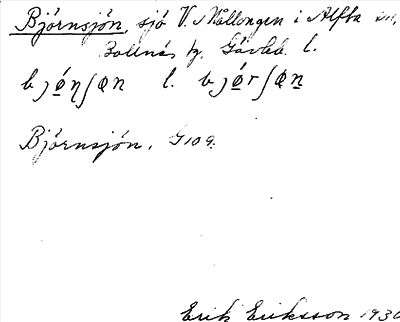 Björnsjön, sjö V. Mållongen i Alfta sn,
Bollnäs tg. Gävleb. l.
bjö̲ŋʃøn l. bjö̲rʃøn
Björnsjön. G109.
Erik Eriksson 1930